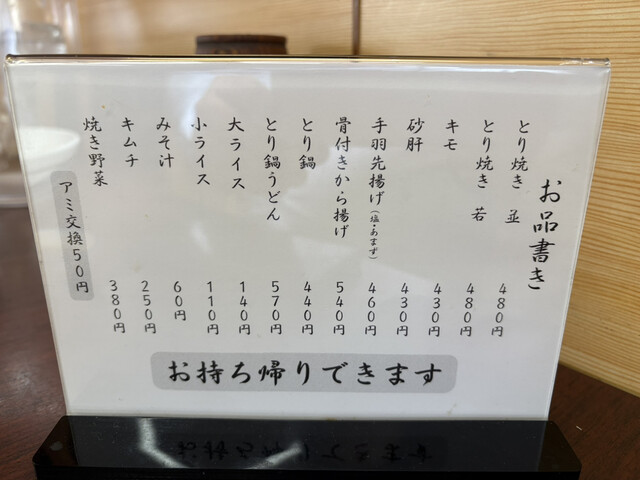 お品書き
とり焼き 並 480円
とり焼き 若 480円
キモ 430円
砂肝 430円
手羽先揚げ(塩・あまず) 460円
骨付きから揚げ 540円
とり鍋 440円
とり鍋うどん 570円
大ライス 140円
小ライス 110円
みそ汁 60円
キムチ 250円
焼き野菜 380円
アミ交換50円
お持ち帰りできます